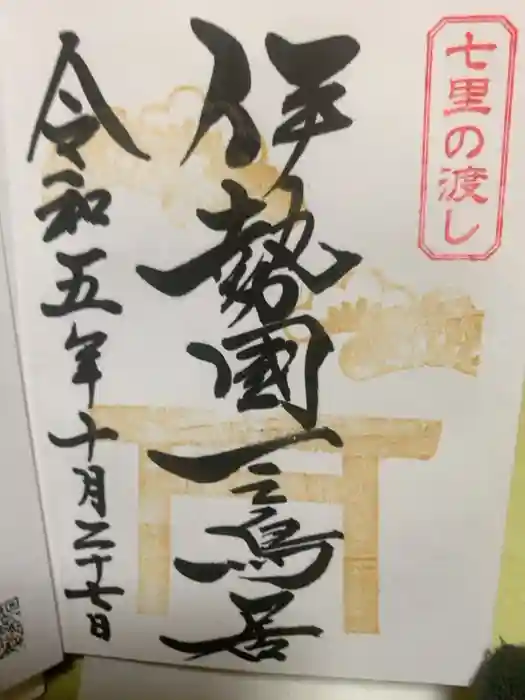 七里の渡し
伊勢國一之鳥居
令和五年十月二十七日